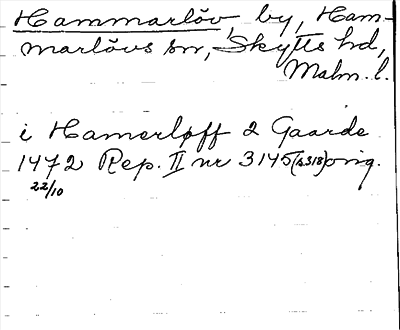 Hammarlöv, by, Ham-
marlövs sn, Skytts hd,
Malm. l.
i Hamerløff 2 Gaarde
1472 Rep. II nr 3145 (s 318) orig.
22/10